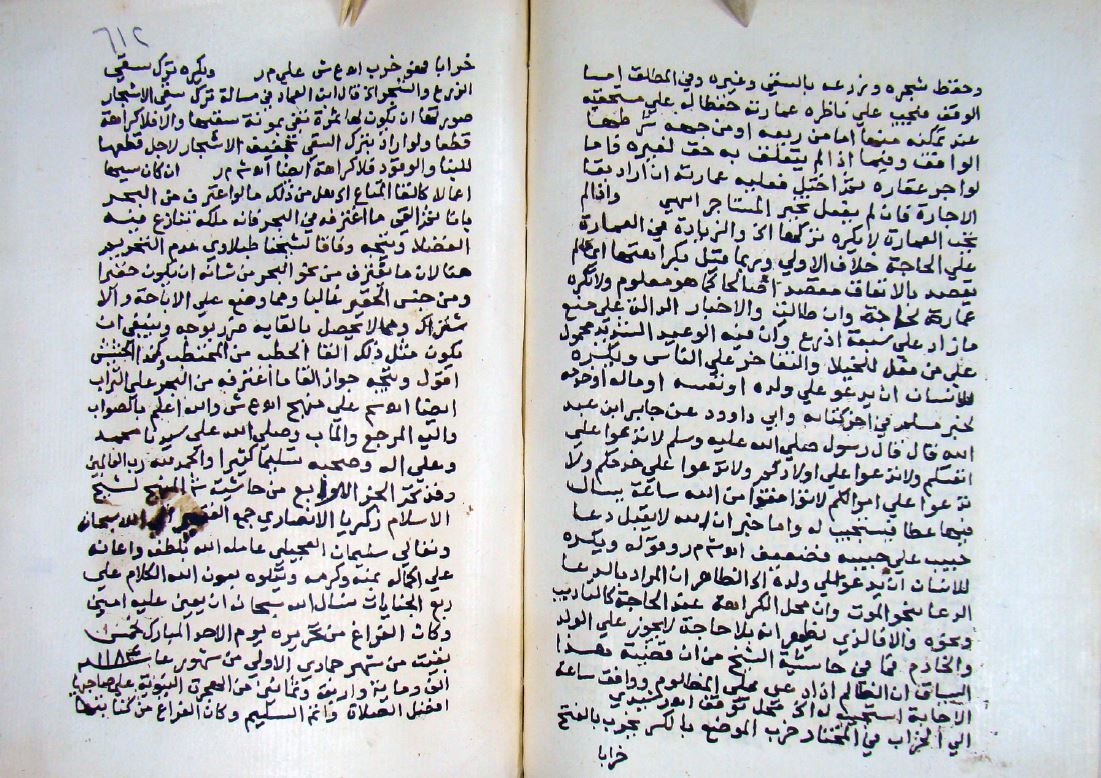 وحفظ شجره وزرعه بالسقي وغيره وفي المطلق اما
الوقف فيجب على ناظره عمارته حفظا له على مستحقيه
عند تمكنه منها اما من ريعه او من جهة شرطها
الواقف وفيما اذا لم يتعلق به حق لغيره فاما
لو اجر عقاره ثم اختل فعليه عمارته ان اراد بقا
الاجارة فان لم يفعل تخير المستاجر انتهى واذا لم
تجب العمارة لا يكره تركها الخ والزيادة في العمارة
على الحاجة خلاف الاولى وربما قيل بكراهتها
بقصد بالانفاق مقصد صالحا كما هو معلوم ولا تكره
عمارة لحاجة وان طالت والاخبار الدالة على منع
ما زاد على سبعة اذرع وان فيه الوعيد الشديد محمول
على من فعل للخيلا والتفاخر على الناس ويكره
للانسان ان يدعو على ولده او نفسه او ماله او خدمه
لخبر مسلم في اخر كتابه وابي داوود عن جابر ابن عبد
الله قال قال رسول الله صلى الله عليه وسلم لا تدعوا على
انفسكم ولا تدعوا على اولادكم ولا تدعوا على خدمكم ولا
تدعوا على اموالكم لا توافقوا من الله ساعة يسال
فيها عطا فيستجيب له واما خبر ان الله لا يقبل دعا
حبيب على حبيبه فضعيف اه ش م ر وقوله ويكره
للانسان ان يدعو على ولده الخ الظاهر ان المراد بالدعا
الدعا بنحو الموت وان محل الكراهة عند الحاجة كالتاديب
ونحوه والا فالذي يظهر انه بلا حاجة لا يجوز على الولد
والخادم فما في حاشية الشيخ من ان قضية هذا
السياق ان الظالم اذا دعى على المظلوم ووافق ساعة
الاجابة استجيب له الخ محل توقف اه رشيدي
الى الخراب في المختار خرب الموضع بالكسر يخرب بالفتح
خرابا
٦١٢
خرابا فهو خرب اه ع ش على م ر ويكره ترك سقي
الزرع والشجر الخ قال ابن العماد في مسالة ترك سقي الاشجار
صورتها ان يكون لها ثمرة تفي بمونة سقيها والا فلا كراهة
قطعا ولو اراد بترك السقي تجفيف الاشجار لاجل قطعها
للبنا والوقود فلا كراهة ايضا اه ش م ر ان كان سببها
اعمالا كالقا المتاع اي هل من ذلك ما لو اغترف من البحر
انا ثم القى ما اغترفه في البحر فانه ملكه تنازع فيه
الفضلا ويتجه وفاقا لشيخنا طبلاوي عدم التحريم
هنا لان ما يغترف من نحو البحر من شانه ان يكون حقيرا
ومن جنس الحقير غالبا ومما وضع على الاباحة والا
شتراك ومما لا يحصل بالقايه ضرر بوجه وينبغي ان
يكون مثل ذلك القا الحطب من المحتطب وكذا الحشيش
اقول ويتجه جواز القا ما اغترفه من البحر على التراب
ايضا اه سم على منهج اه ع ش والله اعلم بالصواب
واليه المرجع والماب وصلى الله على سيدنا محمد
وعلى اله وصحبه تسليما كثيرا والحمد لله رب العالمين
وقد تم الجزء الرابع من حاشية ش المنهج لشيخ
الاسلام زكريا الانصاري جمع الفقير الى الله سبحانه
وتعالى سليمان العجيلي عامله الله بلطفه واعانه
على اكماله بمنه وكرمه ويتلوه بعون الله الكلام على
ربع الجنايات فنسال الله سبحانه ان يعين عليه امين
وكان الفراغ من تحريره يوم الاحد المبارك لخمس
بقيت من شهر جمادي الاولى من شهور عام ١١٨٤
الف وماية واربعة وثمانين من الهجرة النبوية على صاحبها
افضل الصلاة واتم التسليم وكان الفراغ من كتابتها